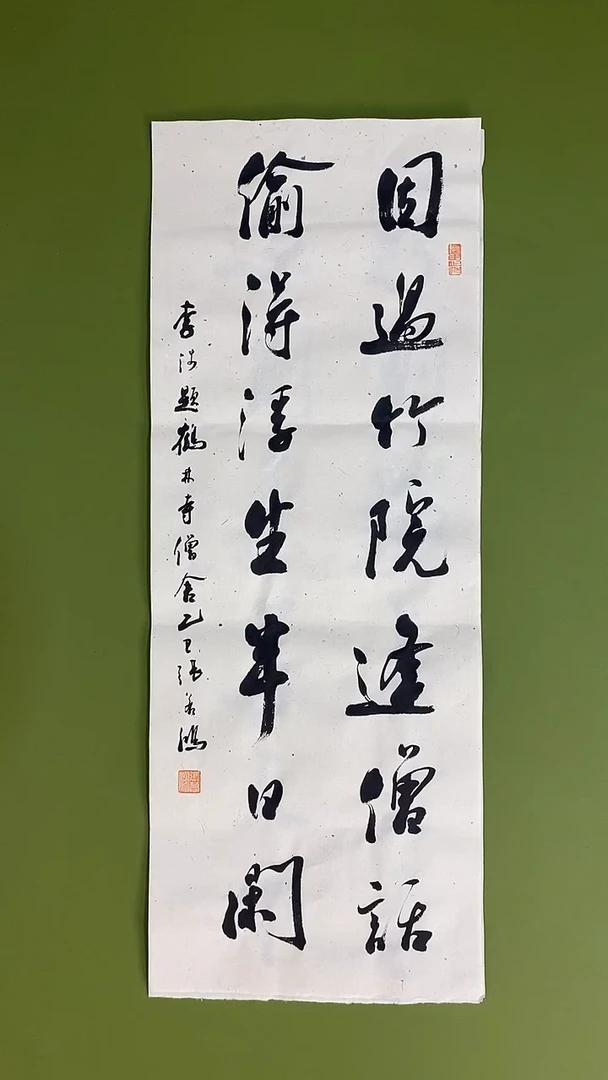 因過竹院逢僧話
偷得浮生半日閑
李涉題鶴林寺僧舍乙巳張善鴻